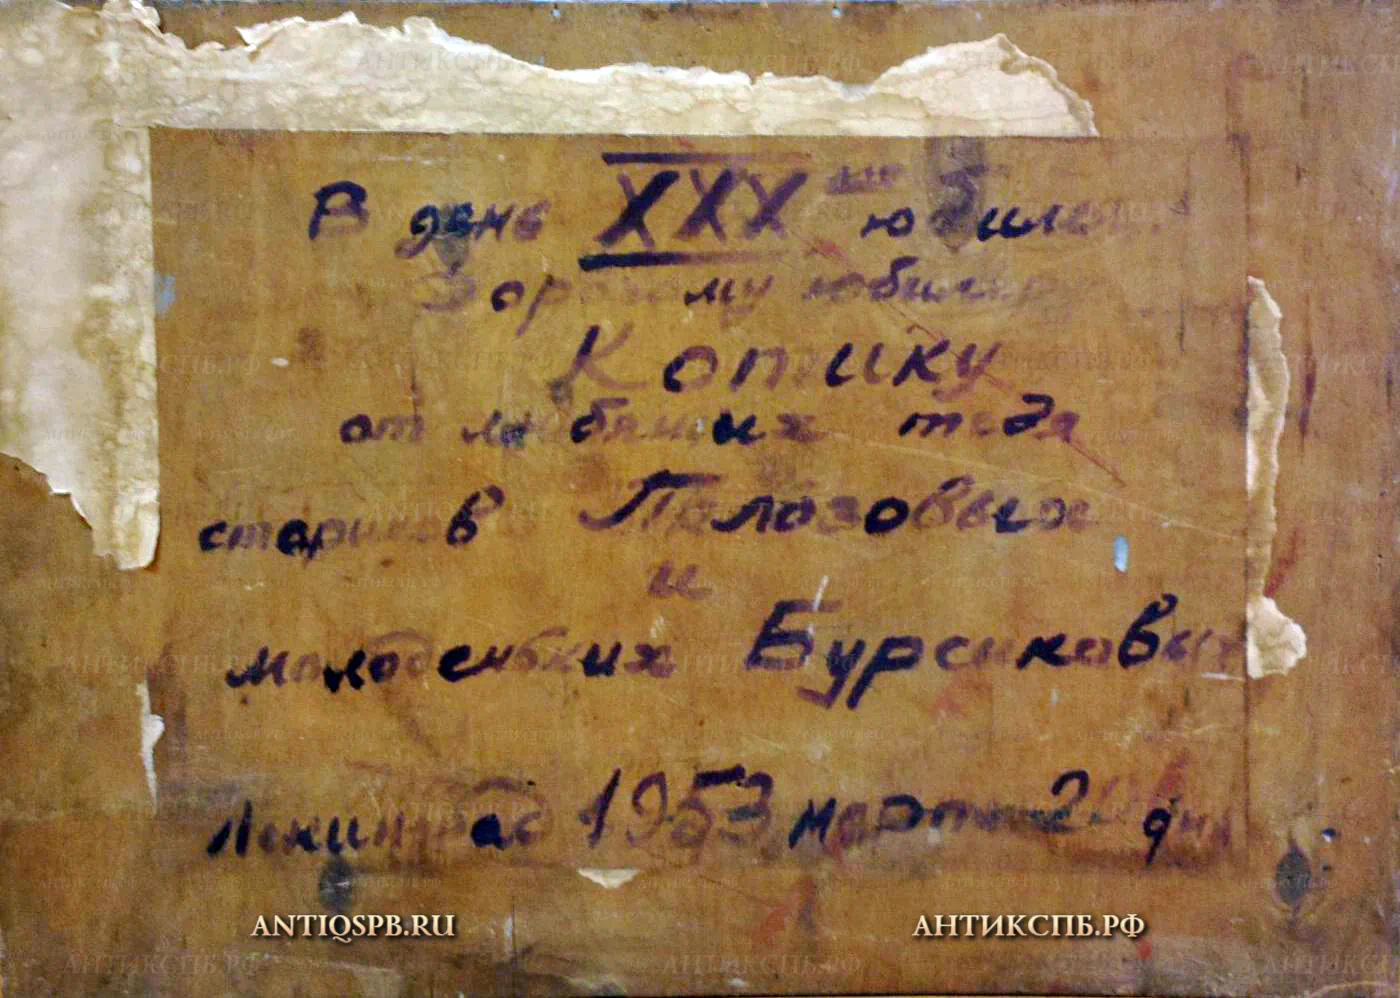 В день XXX юбилея
Дорогому юбиляру
Котику
от любящих тебя
стариков Полозовых
и
молоденьких Бурсиковых
Ленинград 1953 марта 2 дня
ANTIQSPB.RU АНТИКСПБ.РФ